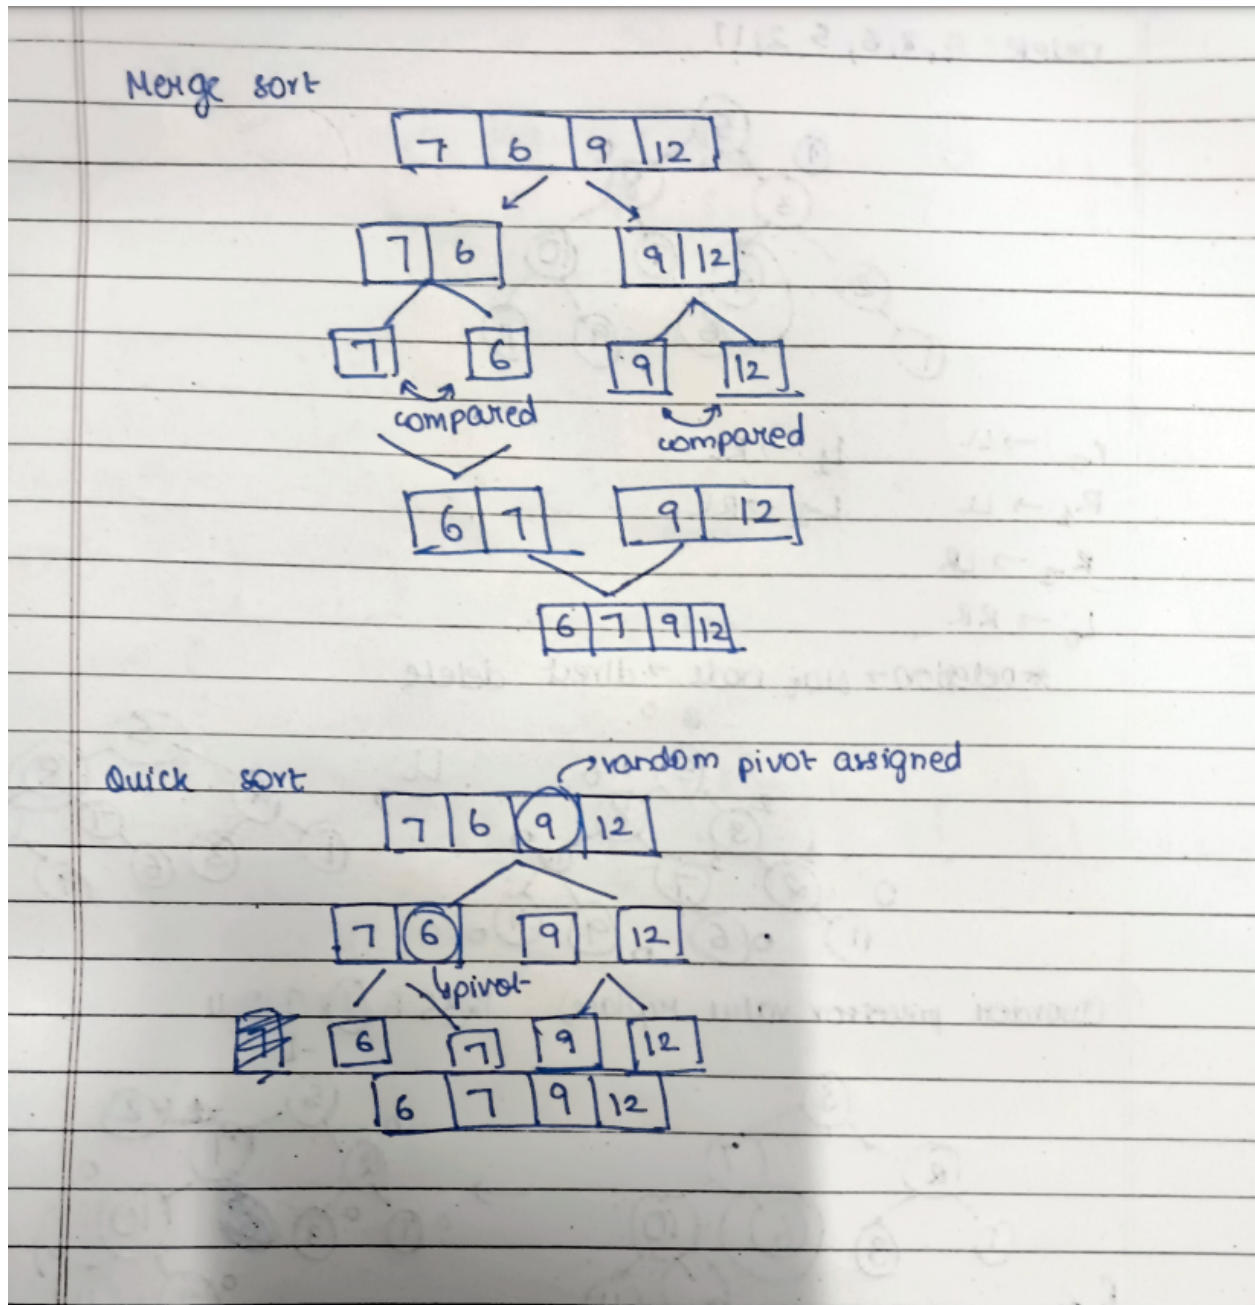 Merge sort
7 6 9 12
7 6 9 12
7 6 9 12
compared compared
6 7 9 12
6 7 9 12
random pivot assigned
Quick sort
7 6 9 12
7 6 9 12
pivot
6 7 9 12
6 7 9 12